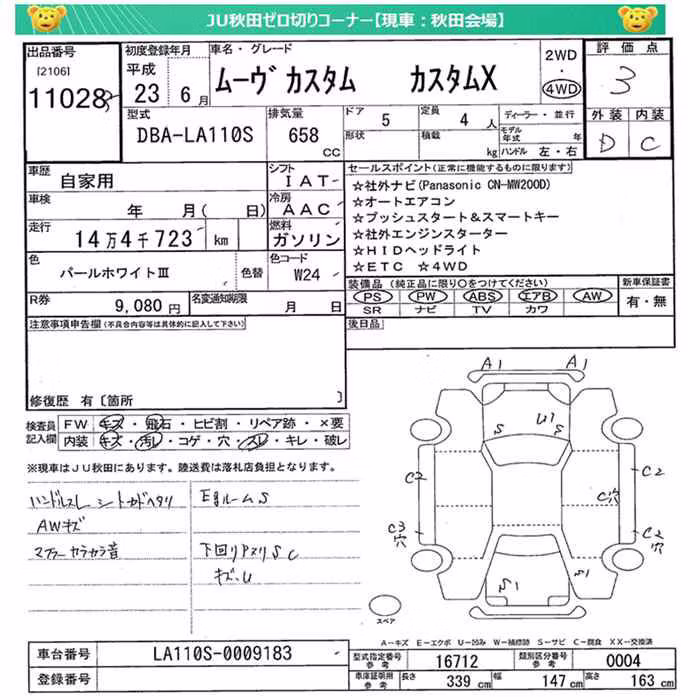 JU秋田ゼロ切りコーナー【現車：秋田会場】
出品番号 初度登録年月 車名・グレード 2WD・4WD 評価点
[2106] 平成 ムーヴ カスタム カスタムX 3
11028 23年6月
型式 排気量 ドア 5 定員 4人 ディーラー・並行 外装 内装
DBA-LA110S 658CC 形状 積載 kg モデル年式 年 D C
ハンドル 左・右
車歴 自家用 シフト IAT セールスポイント(正常に機能するものに限ります)
車検 年 月( 日) 冷房 AAC ☆社外ナビ(Panasonic CN-MW200D)
☆オートエアコン
☆プッシュスタート&スマートキー
走行 14万4千723 km 燃料 ガソリン ☆社外エンジンスターター
☆HIDヘッドライト
☆ETC ☆4WD
色 パールホワイトⅢ 色替 色コード W24
装備品 (純正品に限り○をつけてください) 新車保証書
PS PW ABS エアB AW 有・無
SR ナビ TV カワ
R券 9,080円 名変通知期限 月 日
注意事項申告欄(不具合内容等は具体的に記入して下さい) 後日品
修復歴 有〔箇所 〕
検査員記入欄 FW キズ・飛石・ヒビ割・リペア跡・×要
内装 キズ・汚レ・コゲ・穴・スレ・キレ・破レ
※現車はJU秋田にあります。陸送費は落札店負担となります。
ハンドルスレ シートカドヘタリ EgルームS
AWキズ
マフラーカラカラ音 下回りアスリSC
キズ・U
A1 A1
S U1 S
C2 C2
C穴
C3穴 C2穴
S1 S1
スペア
A-キズ E-エクボ U-凹み W-補修跡 S-サビ C-腐食 XX-交換済
車台番号 LA110S-0009183 型式指定番号参考 16712 類別区分番号参考 0004
登録番号 車庫証明用参考 長さ 339cm 幅 147cm 高さ 163cm